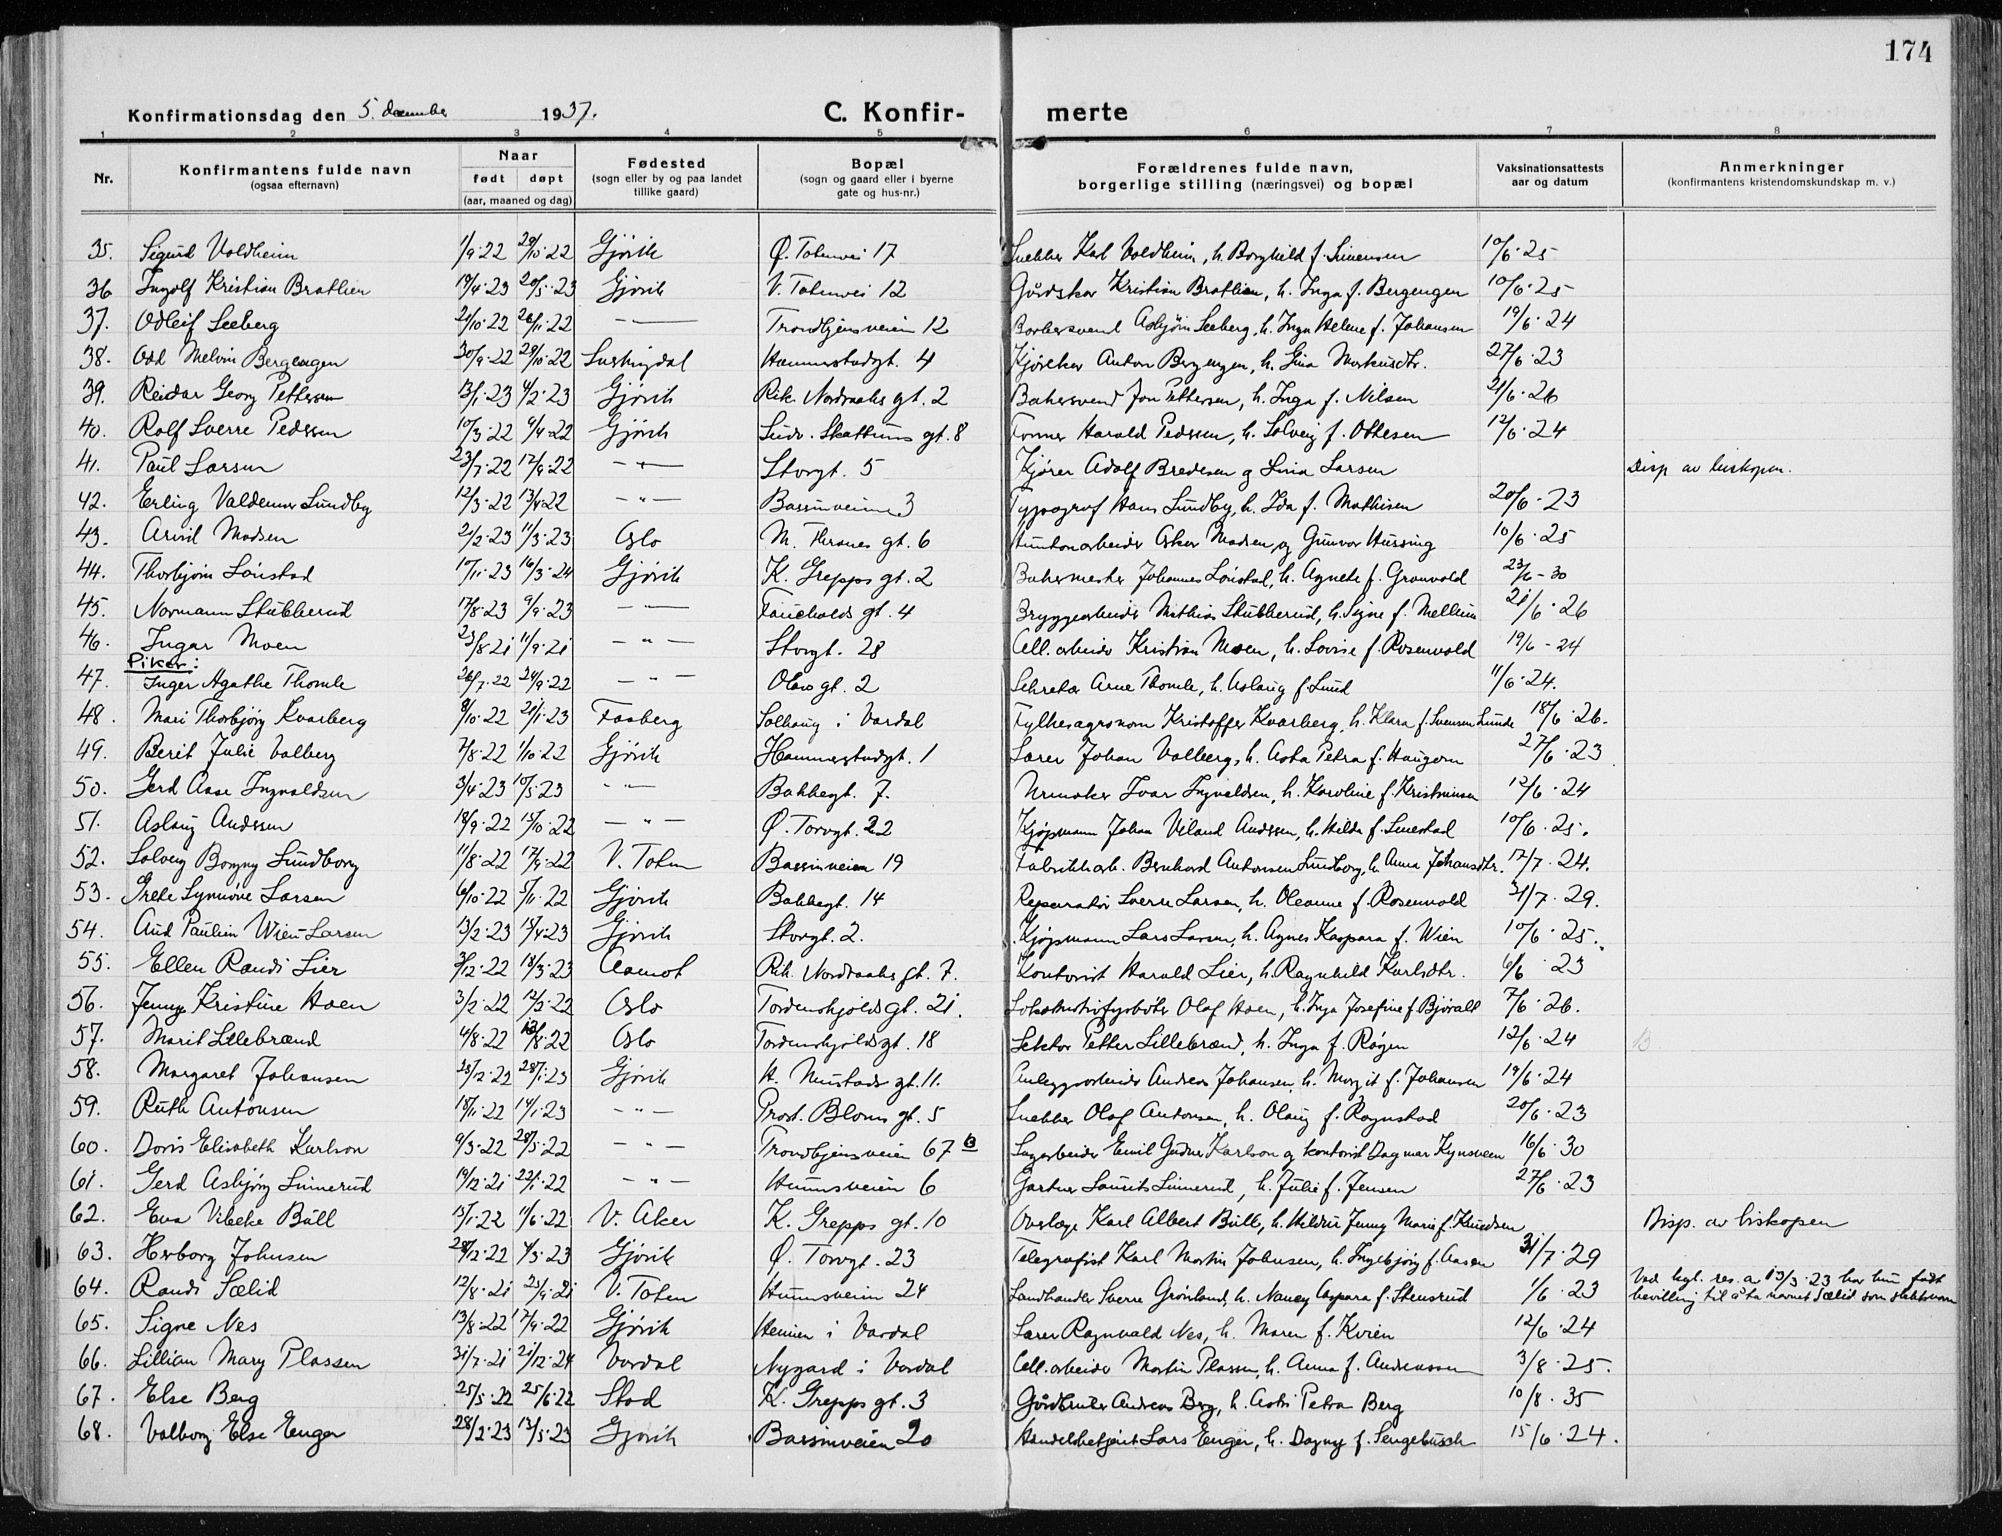 174
Konfirmationsdag den 5. december 1937. C. Konfir- merte
1 2 3 4 5 6 7 8
Nr. Konfirmantens fulde navn (ogsaa efternavn) Naar født døpt (aar, maaned og dag) Fødested (sogn eller by og paa landet tillike gaard) Bopæl (sogn og gaard eller i byerne gate og hus-nr.) Forældrenes fulde navn, borgerlige stilling (næringsvei) og bopæl Vaksinationsattests aar og datum Anmerkninger (konfirmantens kristendomskundskap m. v.)
35. Sigurd Voldheim 1/9·22 29/10·22 Gjøvik Ø. Totenvei 17 Snekker Karl Voldheim, h. Borghild f. Simensen 10/6·25
36 Ingolf Kristian Bratlien 19/4·23 20/5·23 Gjøvik V. Totenvei 12 Gårdskar Kristian Bratlien, h. Inga f. Bergengen 10/6·25
37. Odleif Seeberg 21/10·22 26/11·22 — Trondhjemsveien 12 Barbersvend Asbjørn Seeberg, h. Inga Helene f. Johansen 19/6·24
38. Odd Melvin Bergengen 30/9·22 29/10·22 Hammerstadgt. 4 Anton Bergengen, h. Gina Markusdtr. 27/6·23
39. Reidar Georg Pettersen 13/1·23 4/2·23 Gjøvik Rik. Nordraaks gt. 2 Bakersvend Jon Pettersen, h. Inga f. Nilsen 21/6·26
40. Rolf Sverre Pedersen 10/3·22 9/4·22 Gjøvik Ludv. Skattums gt. 8 Former Harald Pedersen, h. Solveig f. Ottesen 12/6·24
41. Paul Larsen 23/7·22 17/9·22 — " — Storgt. 5 Kjører Adolf Bredesen og Lina Larsen Disp av biskopen.
42. Erling Valdemar Lundby 12/3·22 13/4·22 — " — Bassinveien 3 Typograf Hans Lundby, h. Ida f. Mathisen 20/6·23
43. Arvid Madsen 21/2·23 11/3·23 Oslo M. Thranes gt. 6 Huntonarbeider Oskar Madsen og Gunvor Hussing 10/6·25
44. Thorbjørn Lønstad 17/11·23 16/3·24 Gjøvik K. Grepps gt. 2 Bakermester Johannes Lønstad, h. Agnete f. Granvold 23/6-30
45. Normann Stubberud 17/8·23 9/9·23 — " — Fauchalds gt. 4 Bryggearbeider Mathias Stubberud, h. Signe f. Mellum 21/6·26
46. Ingar Moen 23/8·21 11/9·21 — " — Storgt. 28 Cell. arbeider Kristian Moen, h. Lovise f. Rosenvold 19/6-24
Piker:
47. Inger Agathe Thomle 26/7·22 24/9·22 — " — Olavs gt. 2 Sekretær Arne Thomle, h. Aslaug f. Lund 11/6·24.
48. Mari Thorbjørg Kvarberg 8/10·22 21/1·23 Faaberg Solhaug i Vardal Fylkesagronom Kristoffer Kvarberg, h. Klara f. Svensen Lunde 18/6·26.
49. Berit Julie Valberg 7/8·22 1/10·22 Gjøvik Hammerstadgt. 1 Lærer Johan Valberg, h. Asta Petra f. Haugom 27/6·23
50. Gerd Aase Ingvaldsen 3/4·23 10/5·23 — " — Bakkegt. 7. Urmaker Ivar Ingvaldsen, h. Karoline f. Kristiansen 12/6·24
51. Aslaug Andssen 18/9·22 15/10·22 — " — Ø. Torvgt. 22 Kjøpmann Johan Viland Andssen, h. Hilda f. Smestad 10/6·25.
52. Solveig Borgny Sundborg 11/8·22 17/9·22 V. Toten Bassinveien 19 Fabrikkarb. Bernhard Antonsen Sundborg, h. Anna Johansdtr. 17/7·24.
53. Grete Synnøve Larsen 6/10·22 5/11·22 Gjøvik Bakkegt. 14 Reparatør Sverre Larsen, h. Oleanne f. Rosenvold 31/7·29.
54. Aud Paulien Wien-Larsen 13/2·23 15/4·23 Gjøvik Storgt. 2. Kjøpmann Lars Larsen, h. Agnes Kaspara f. Wien 10/6·25.
55. Ellen Randi Lier 3/12·22 18/3·23 Aamot Rik. Nordraaks gt. 7. Kontorist Harald Lier, h. Ragnhild Karlsdtr. 6/6·23
56. Jenny Kristine Hoen 3/2·22 12/3·22 Oslo Tordenskjolds gt. 21. Lokomotivfyrbøter Olaf Hoen, h. Inga Josefine f. Bjøralt 7/6·26.
57. Marit Lillebrænd 4/8·22 13/8·22 Oslo Tordenskjolds gt. 18 Lektor Petter Lillebrænd, h. Inga f. Røgen 12/6·24
58. Margaret Johansen 23/12·22 28/1·23 Gjøvik H. Nustads gt. 11. Anleggsarbeider Andreas Johansen, h. Margit f. Johansen 19/6·24
59. Ruth Antonsen 18/11·22 14/1·23 — " — Prost Bloms gt. 5 Snekker Olaf Antonsen, h. Olaug f. Rognstad 20/6·23
60. Doris Elisabeth Karlson 9/3·22 28/5·22 — " — Trondhjemsveien 67 b Lagerbeider Emil Gudnar Karlson og kontorist Dagmar Kynsveen 16/6·30
61. Gerd Asbjørg Linnerud 19/12·21 22/1·22 — " — Hunnsveien 6 Gartner Laurits Linnerud, h. Julie f. Jensen 27/6·23
62. Eva Vibeke Bull 15/1·22 11/6·22 V. Aker K. Grepps gt. 10 Overlæge Karl Albert Bull, h. Hildur Jenny Marie f. Knudsen Disp. av biskopen
63. Herborg Johnsen 28/12·22 4/3·23 Gjøvik Ø. Torvgt. 23 Telegrafist Karl Martin Johnsen, h. Ingebjørg f. Aasen 31/7·29
64. Randi Sælid 12/8·21 25/9·21 V. Toten Hunnsveien 24 Landhandler Sverre Grønland, h. Nancy Caspara f. Stensrud 1/6·23 Ved kgl. res. av 13/3·23 har hun fådt bevilling til å ta navnet Sælid som slektsnavn
65. Signe Nes 13/8·22 17/9·22 Gjøvik Hennien i Vardal Lærer Ragnvald Nes, h. Maren f. Kvien 12/6·24
66. Lillian Mary Plassen 31/7·21 21/12·24 Vardal Nygard i Vardal Cell. arbeider Martin Plassen, h. Anna f. Andreassen 3/8·25.
67. Else Berg 25/5·22 25/6·22 Stod K. Grepps gt. 3 Gårdbruker Andreas Berg, h. Astri Petra Berg 10/8·35
68. Valborg Else Enger 28/2·23 13/5·23 Gjøvik Bassinveien 20 Handelsbetjent Lars Enger, h. Dagny f. Sengebusch 15/6·24.